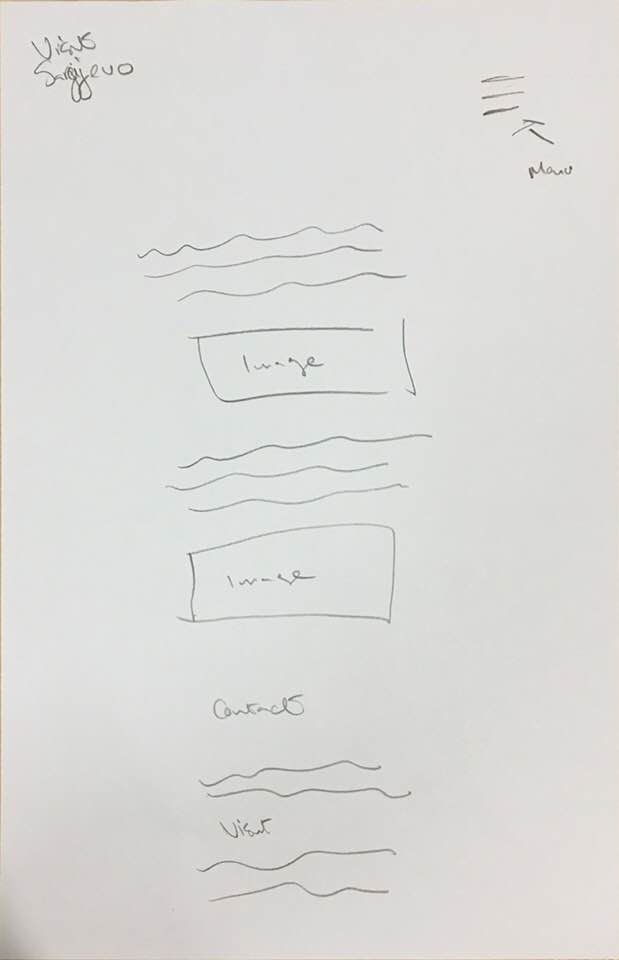 Visit
Sarajevo
Menu
Image
Image
Contact
Visit